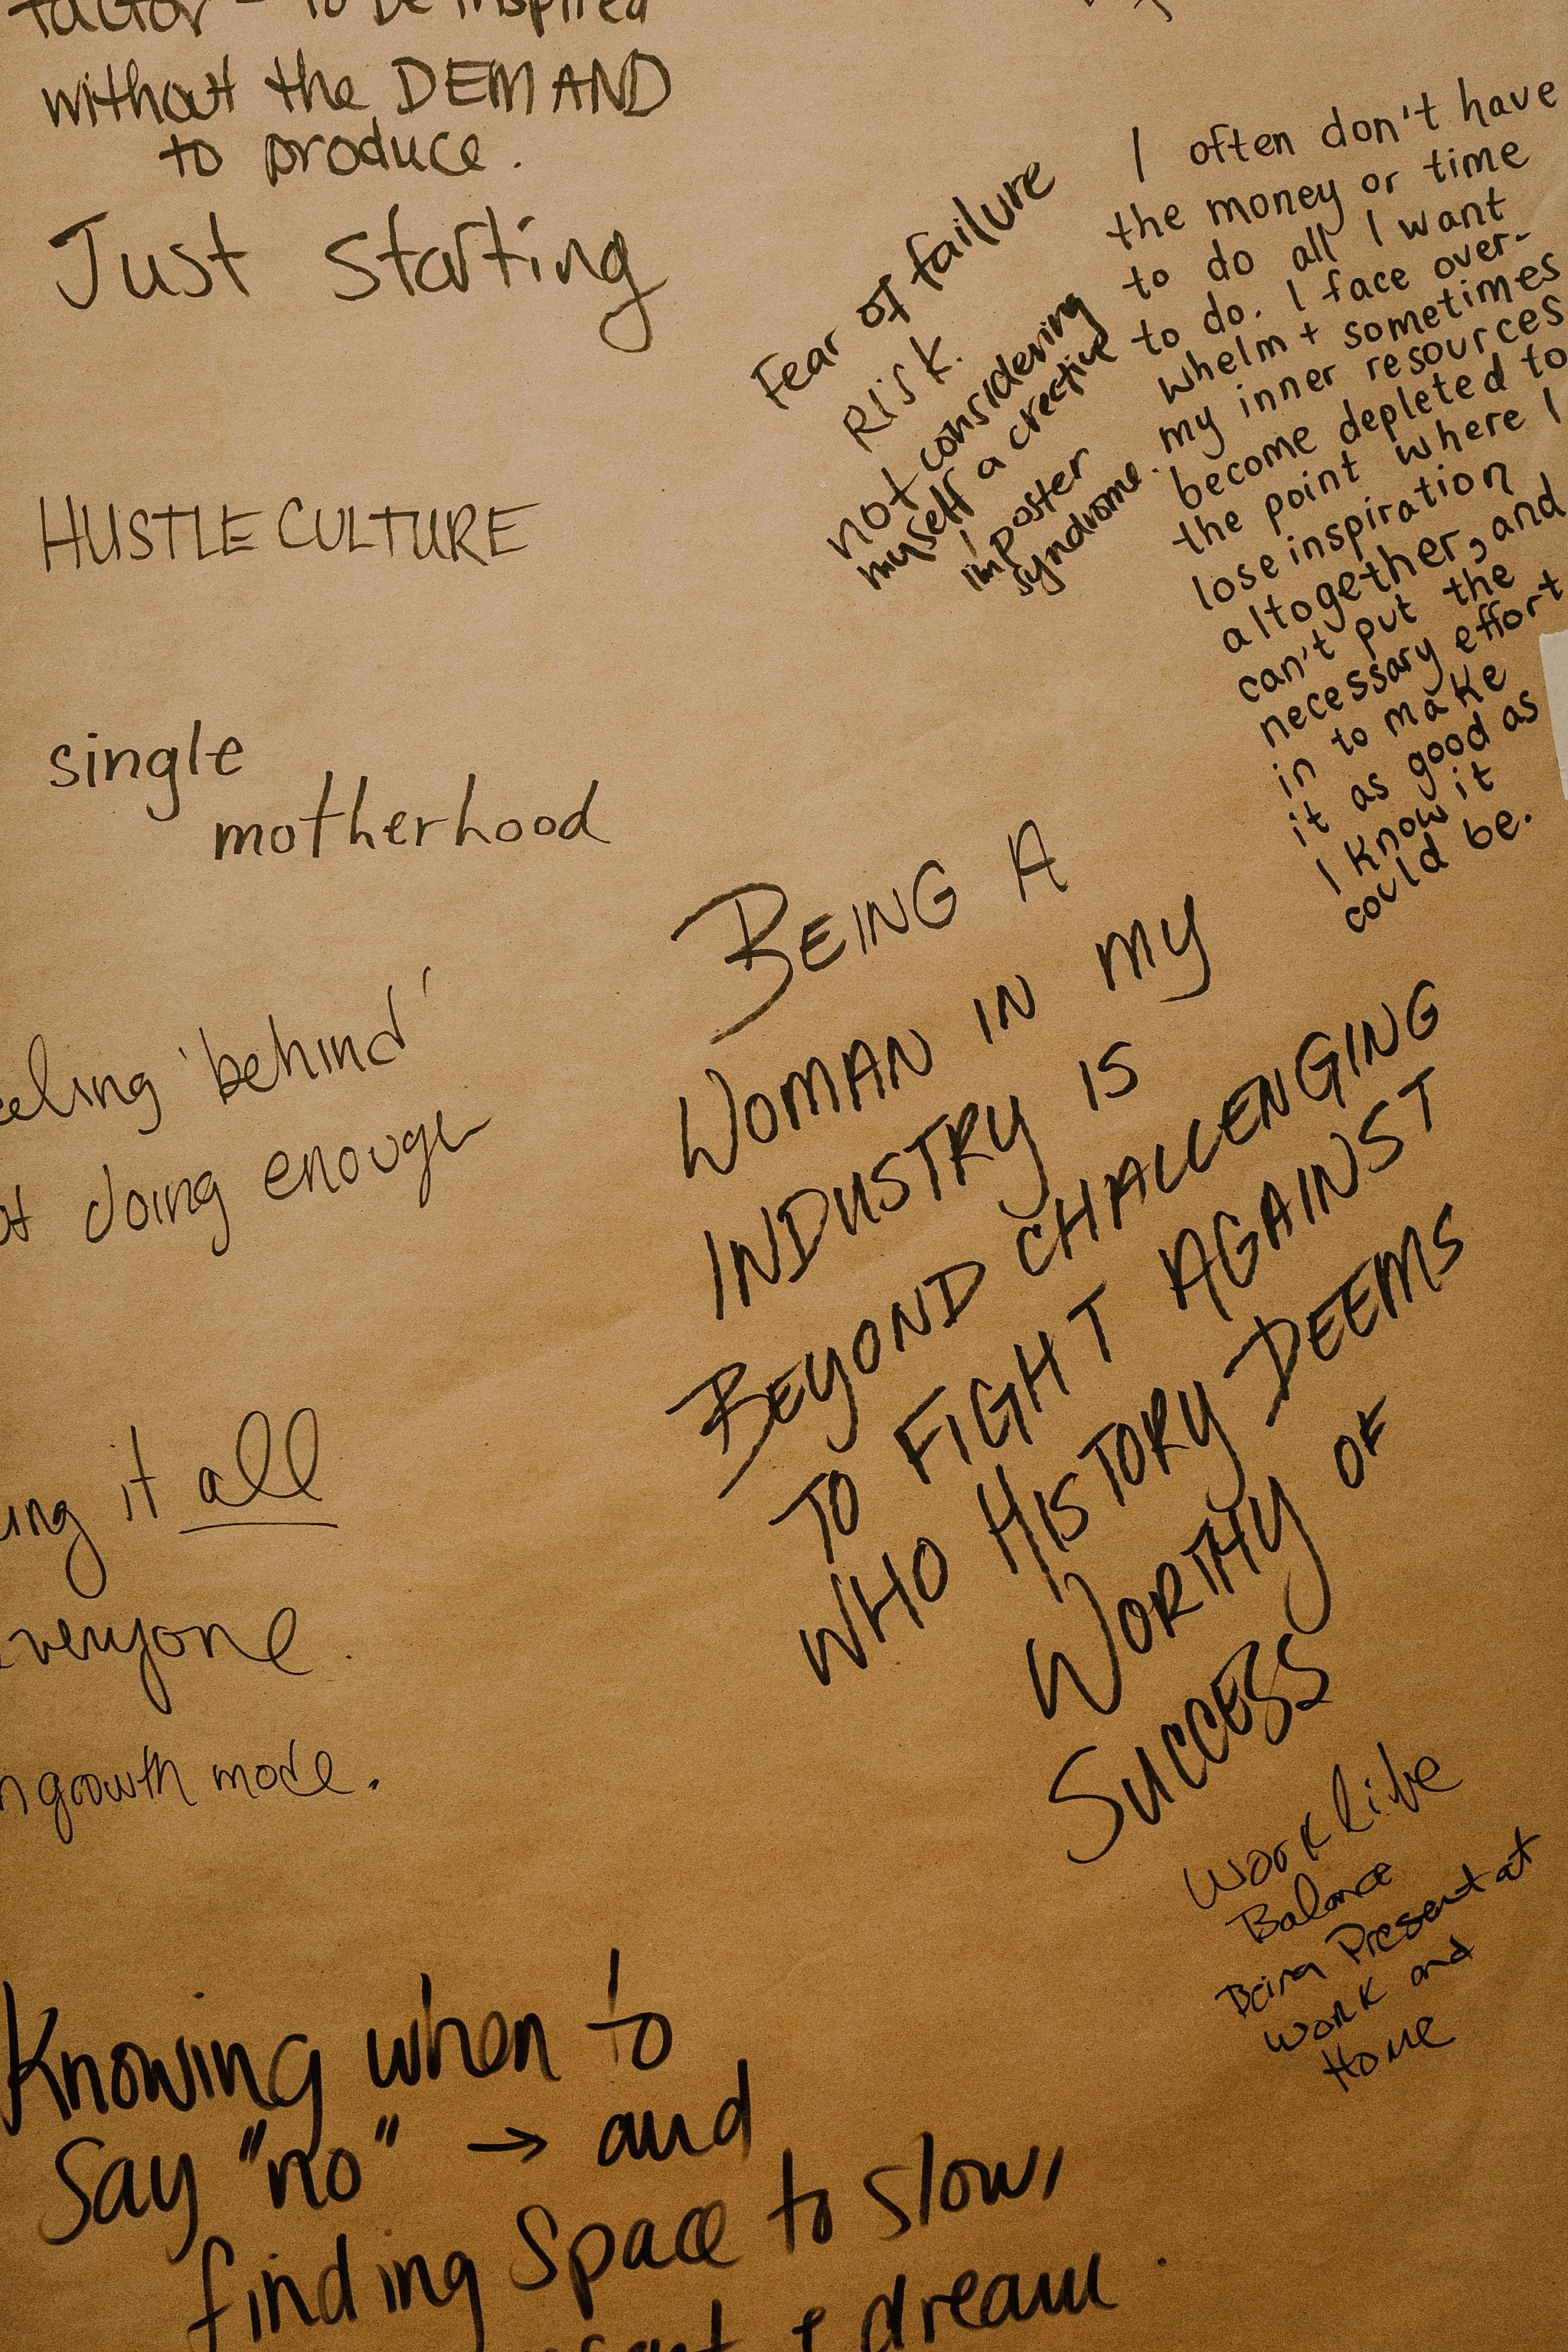 factor - to be inspired
without the DEMAND
to produce.
Just starting
HUSTLE CULTURE
single
motherhood
'behind'
doing enough
it all
everyone.
growth mode.
Knowing when to
Say "no" → and
finding space to slow
& dream.
Fear of failure
Risk.
not considering
myself a creative
imposter
syndrome.
I often don't have
the money or time
to do all I want
to do. I face over-
whelm + sometimes
my inner resources
become depleted to
the point where I
lose inspiration
altogether, and
can't put the
necessary effort
in to make
it as good as
I know it
could be.
BEING A
WOMAN IN MY
INDUSTRY IS
BEYOND CHALLENGING
TO FIGHT AGAINST
WHO HISTORY DEEMS
WORTHY OF
SUCCESS
Work Life
Balance
Being Present at
Work and
Home